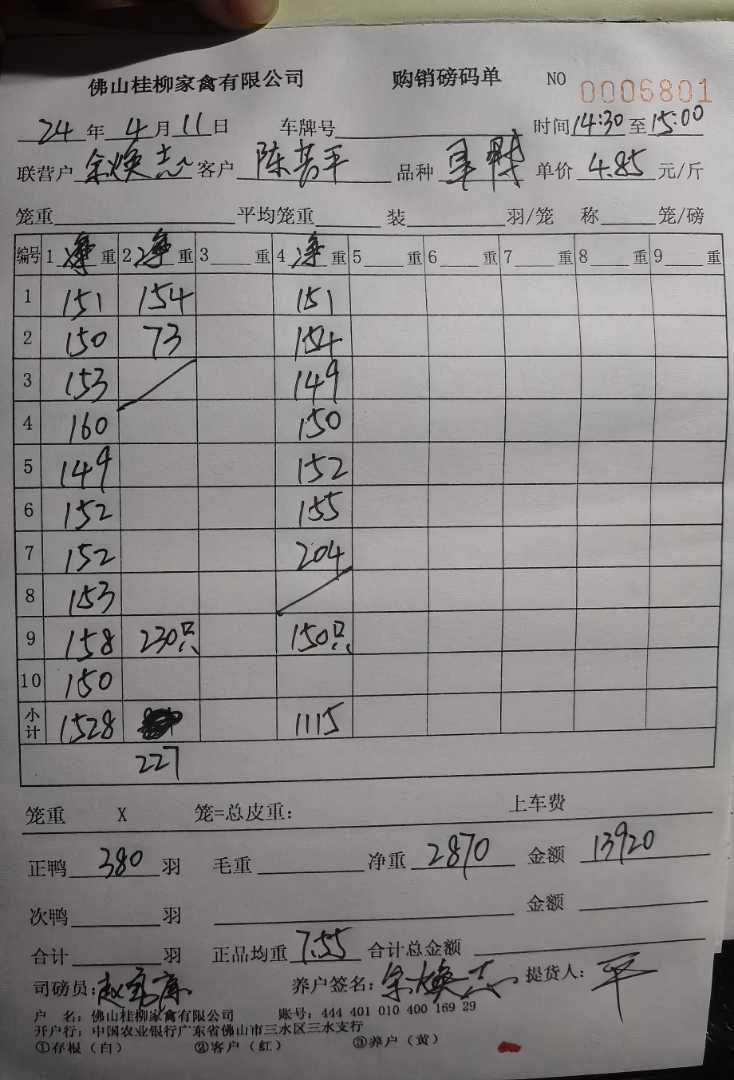 佛山桂柳家禽有限公司 购销磅码单 NO 0006801
24年4月11日 车牌号 时间14:30至15:00
联营户 余焕志 客户 陈 平 品种 单价 4.85 元/斤
笼重 平均笼重 装 羽/笼 称 笼/磅
编号 1 净 重 2 净 重 3 重 4 净 重 5 重 6 重 7 重 8 重 9 重
1 151 154 151
2 150 73 154
3 153 149
4 160 150
5 149 152
6 152 155
7 152 204
8 153
9 158 230只 150只
10 150
小计 1528 1115
227
笼重 X 笼=总皮重: 上车费
正鸭 380 羽 毛重 净重 2870 金额 13920
次鸭 羽 金额
合计 羽 正品均重 7.55 合计总金额
司磅员: 赵 养户签名: 余焕志 提货人: 平
户 名: 佛山桂柳家禽有限公司 账号: 444 401 010 400 169 29
开户行: 中国农业银行广东省佛山市三水区三水支行
①存根(白) ②客户(红) ③养户(黄)